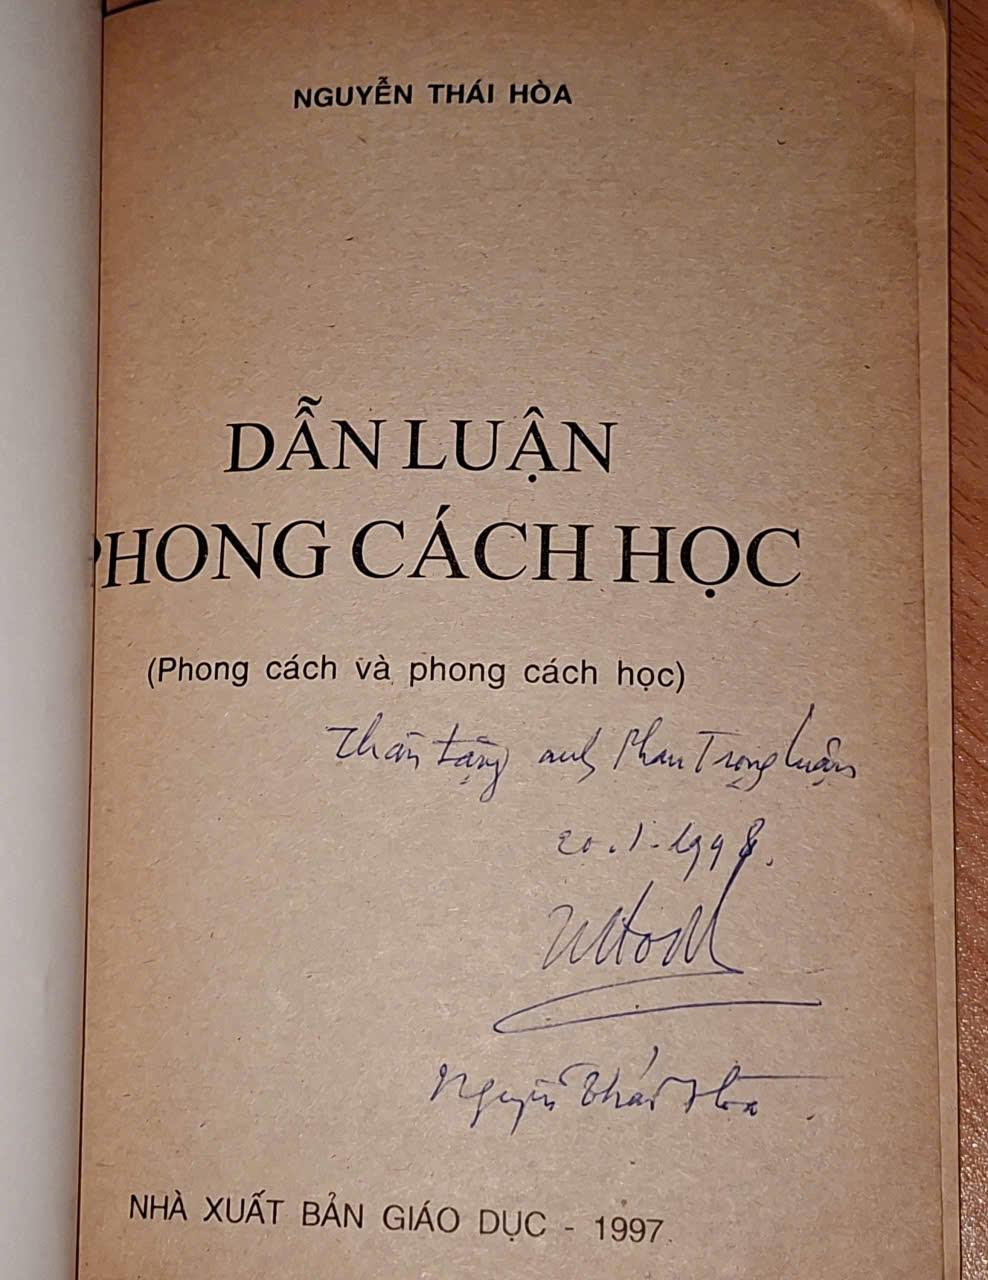 NGUYỄN THÁI HÒA
DẪN LUẬN
PHONG CÁCH HỌC
(Phong cách và phong cách học)
Thân tặng anh Phan Trọng Luận
20.1.1998.
Nguyễn Thái Hòa
NHÀ XUẤT BẢN GIÁO DỤC - 1997